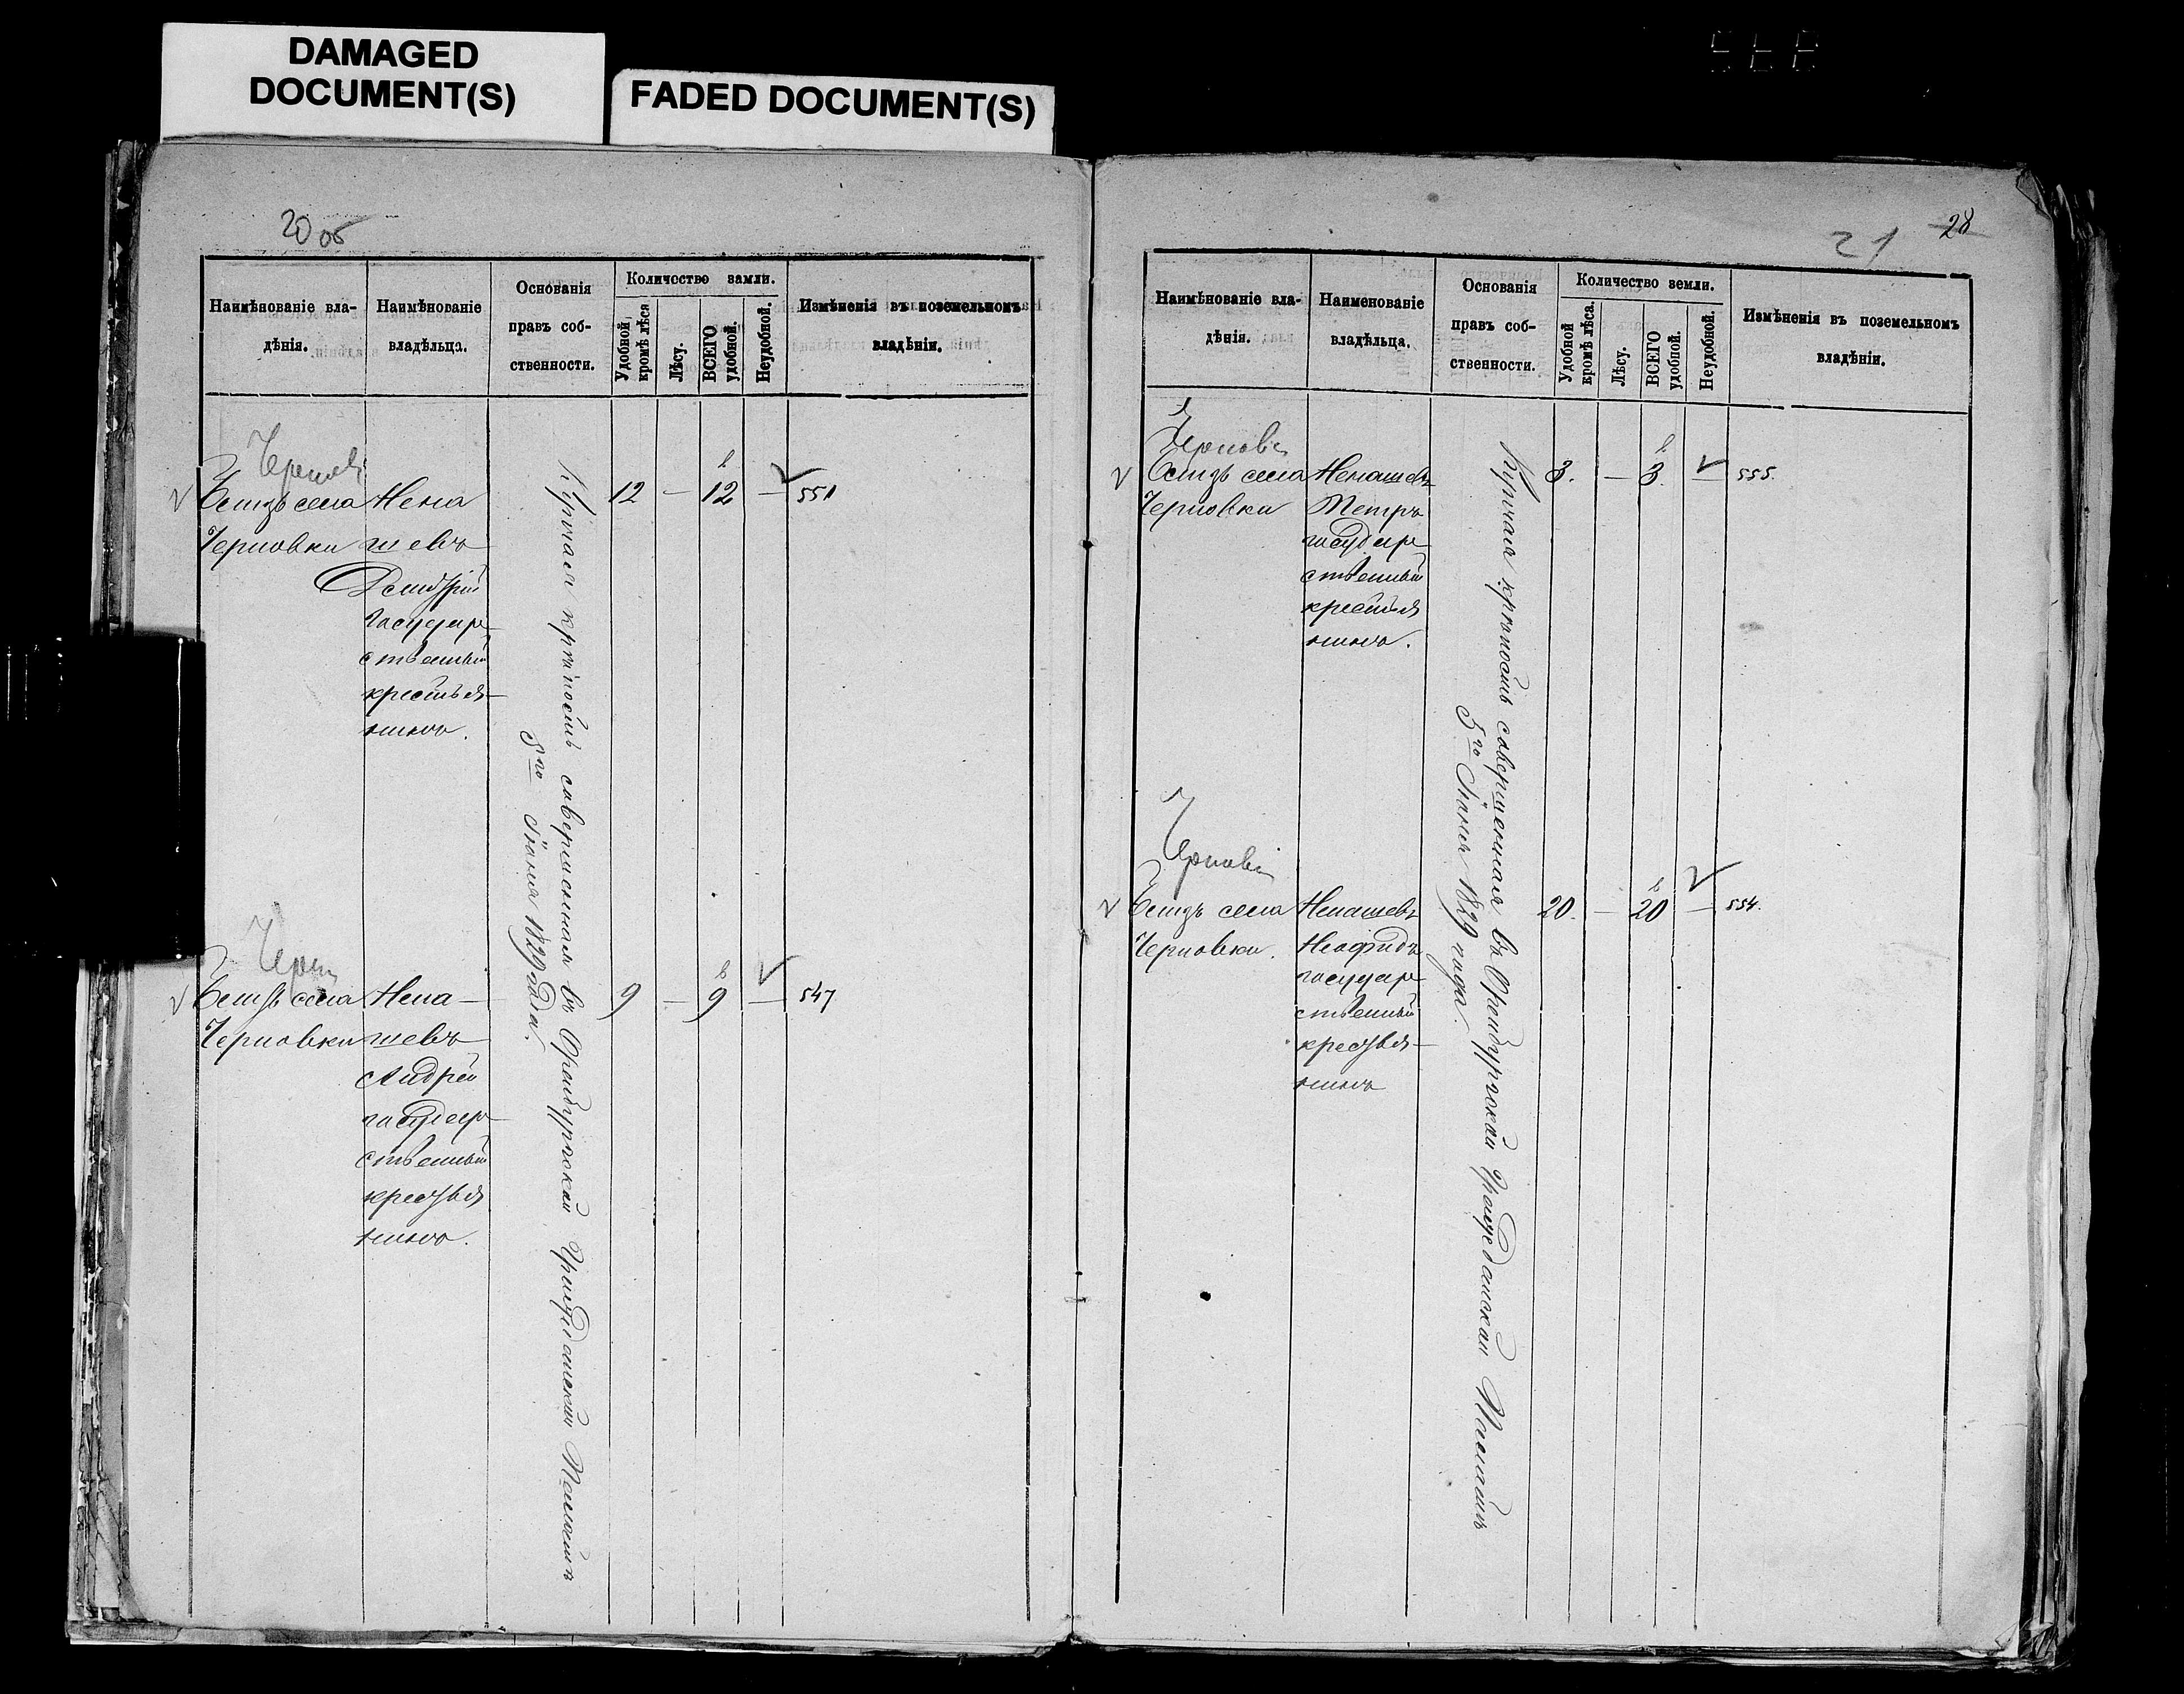 DAMAGED
DOCUMENT(S)
FADED DOCUMENT(S)
20 об
Наимѣнованіе вла-
дѣнія.
Наимѣнованіе
владѣльца.
Основанія
правъ соб-
ственности.
Количество земли.
Удобной
кромѣ лѣса
Лѣсу.
ВСЕГО
удобной.
Неудобной.
Измѣненія въ поземельномъ
владѣніи.
близъ села
Черновки
Нена
шевъ
Дмитрій
государ
ственный
крестья-
нинъ.
Купчая крѣпость совершенная въ Оренбургской Гражданской Палатѣ
5го Іюня 1829 года.
12 — 12 — 551
близъ села
Черновки
Нена-
шевъ
Андрей
государ
ственный
крестья
нинъ.
9 — 9 — 547
21 28
Наимѣнованіе вла-
дѣнія.
Наименованіе
владѣльца.
Основанія
правъ соб-
ственности.
Количество земли.
Удобной
кромѣ лѣса.
Лѣсу.
ВСЕГО
удобной.
Неудобной.
Измѣненія въ поземельномъ
владѣніи.
близъ села
Черновки
Ненашевъ
Петръ
государ
ственный
крестья
нинъ.
Купчая крѣпость совершенная въ Оренбургской Гражданской Палатѣ
5го Іюня 1829 года.
3. — 3. — 555.
близъ села
Черновки.
Ненашевъ
Неофидъ
государ
ственный
крестья-
нинъ
20. — 20 — 554.